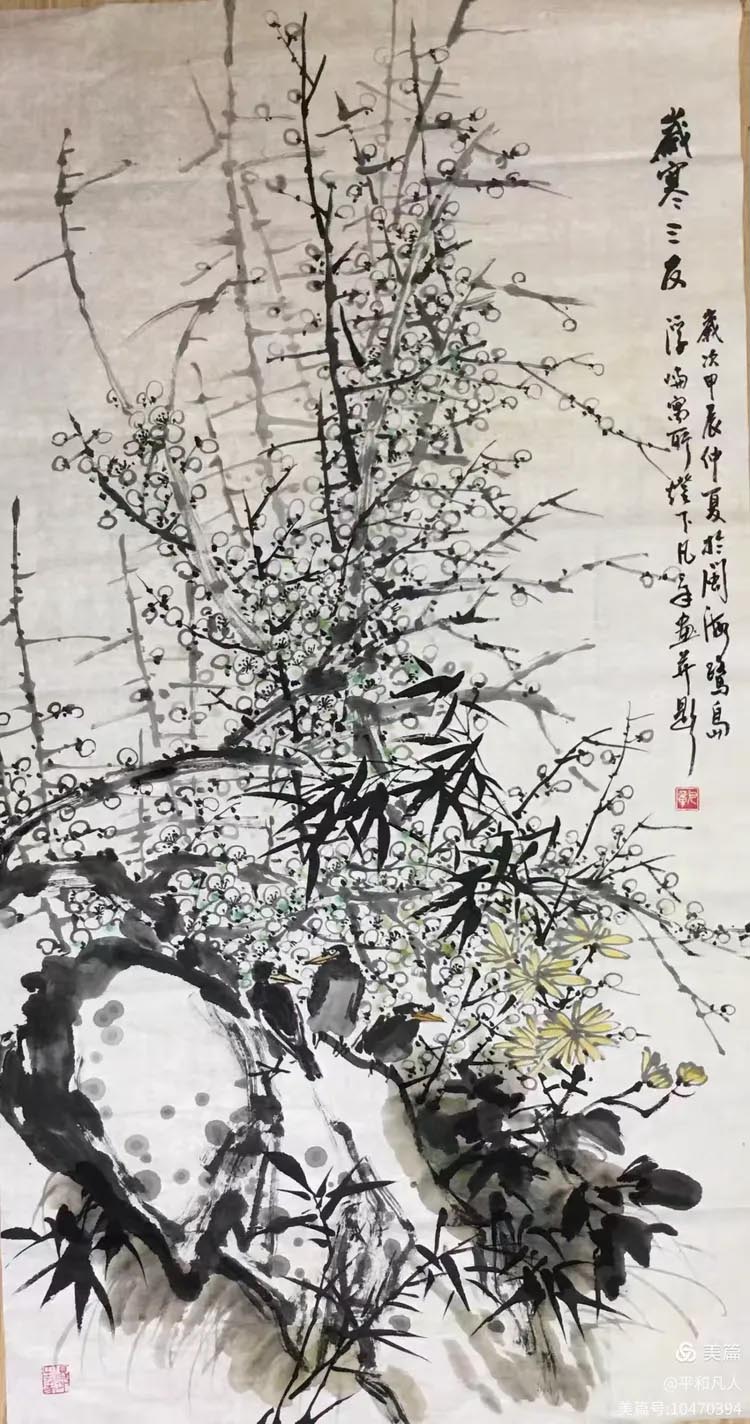 歲寒三友
歲次甲辰仲夏於閩海鷺島
浮嶼寓所燈下凡平畫并題
美篇
@平和凡人
美篇号:10470394